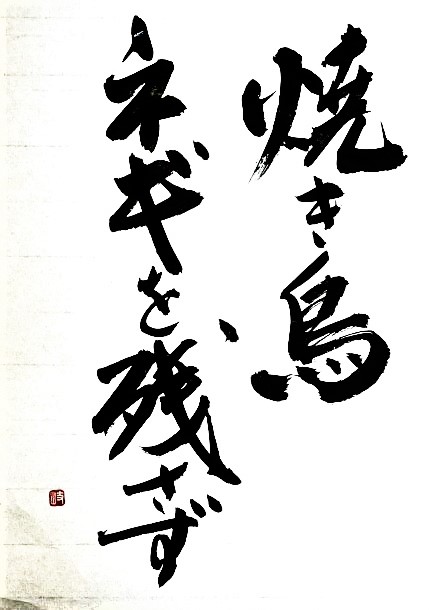 焼き鳥
ネギを残さず